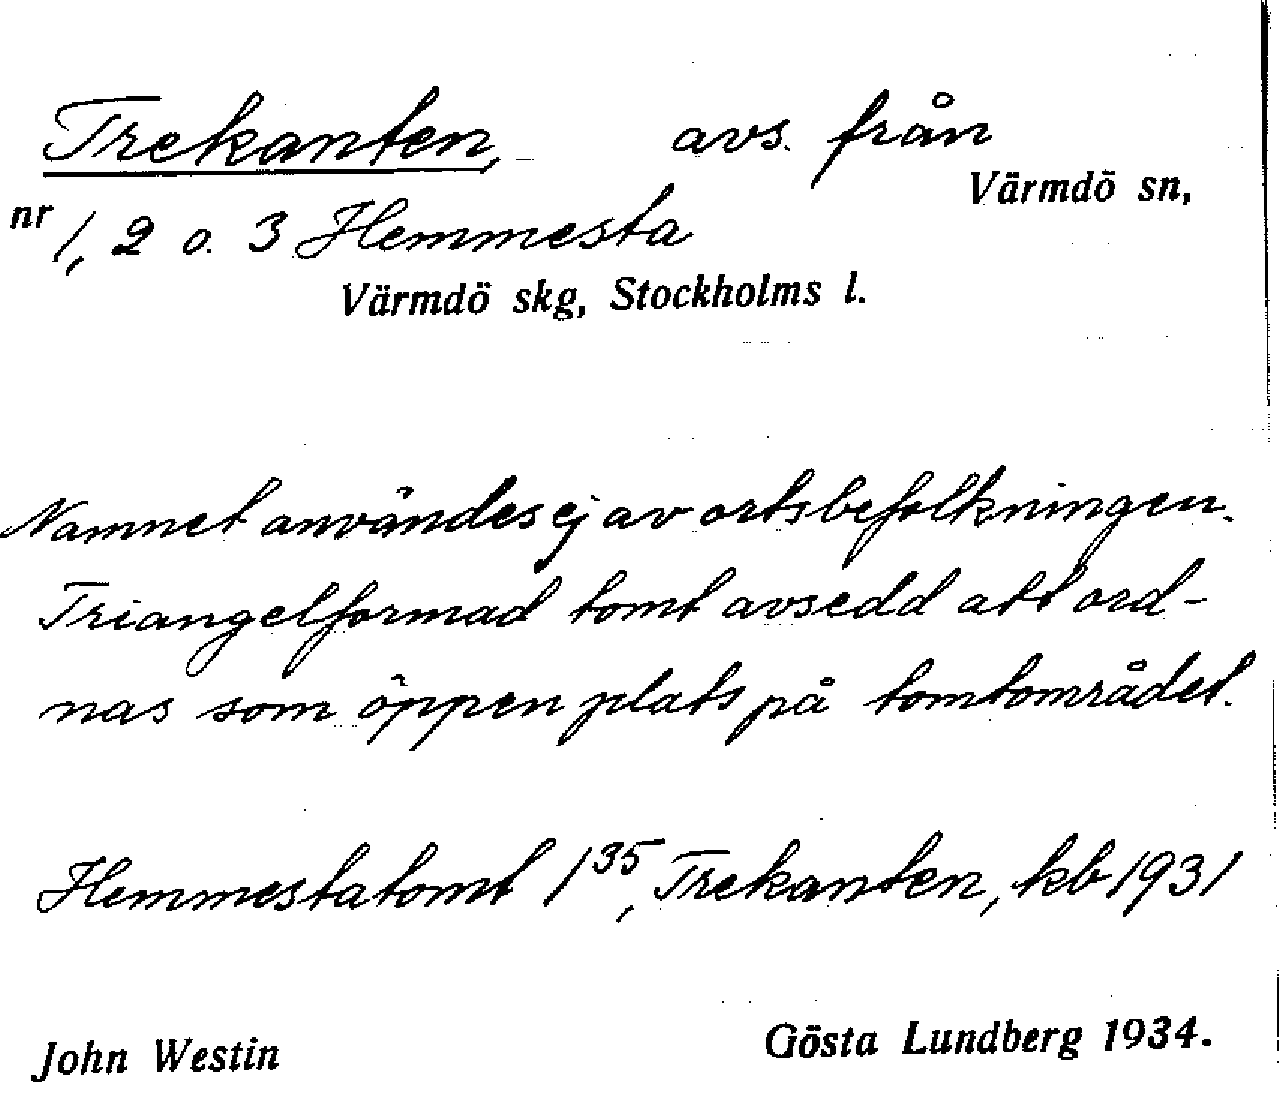 Trekanten, avs. från
Värmdö sn,
nr 1, 2 o. 3 Hemmesta
Värmdö skg, Stockholms l.
Namnet användes ej av ortsbefolkningen.
Triangelformad tomt avsedd att ord-
nas som öppen plats på tomtområdet.
Hemmestatomt 1³⁵, Trekanten, kb 1931
John Westin
Gösta Lundberg 1934.